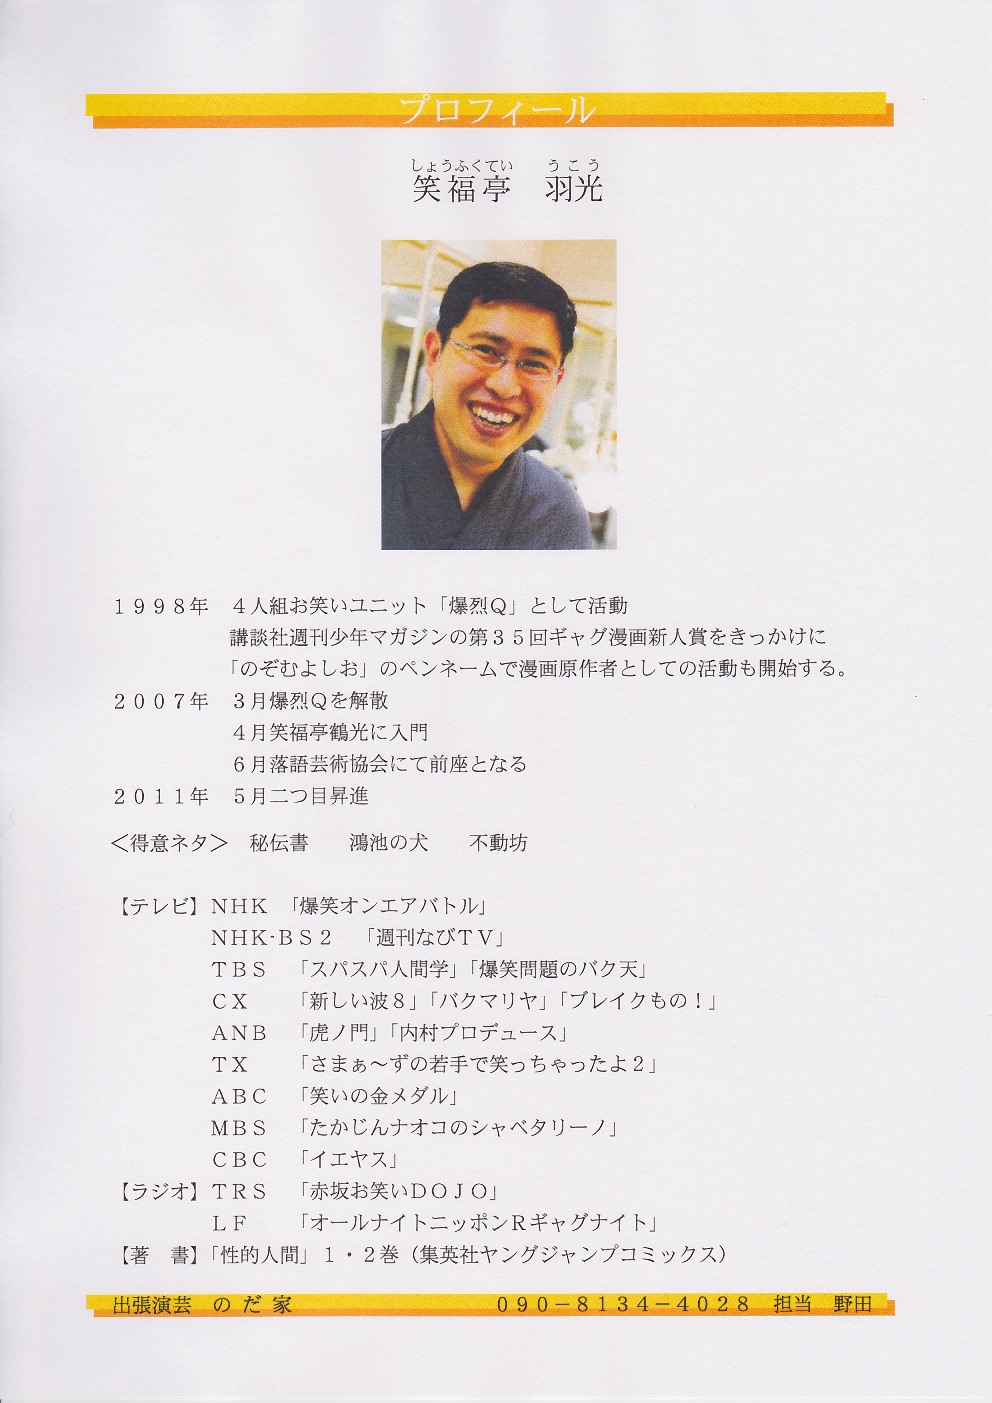 プロフィール
しょうふくてい　うこう
笑福亭　羽光
１９９８年　４人組お笑いユニット「爆烈Ｑ」として活動
講談社週刊少年マガジンの第３５回ギャグ漫画新人賞をきっかけに
「のぞむよしお」のペンネームで漫画原作者としての活動も開始する。
２００７年　３月爆烈Ｑを解散
４月笑福亭鶴光に入門
６月落語芸術協会にて前座となる
２０１１年　５月二つ目昇進
＜得意ネタ＞　秘伝書　　鴻池の犬　　不動坊
【テレビ】ＮＨＫ　「爆笑オンエアバトル」
ＮＨＫ-ＢＳ２　「週刊なびＴＶ」
ＴＢＳ　「スパスパ人間学」「爆笑問題のバク天」
ＣＸ　　「新しい波８」「バクマリヤ」「ブレイクもの！」
ＡＮＢ　「虎ノ門」「内村プロデュース」
ＴＸ　　「さまぁ～ずの若手で笑っちゃったよ２」
ＡＢＣ　「笑いの金メダル」
ＭＢＳ　「たかじんナオコのシャベタリーノ」
ＣＢＣ　「イエヤス」
【ラジオ】ＴＲＳ　「赤坂お笑いＤＯＪＯ」
ＬＦ　　「オールナイトニッポンＲギャグナイト」
【著　書】「性的人間」１・２巻（集英社ヤングジャンプコミックス）
出張演芸　のだ家　０９０－８１３４－４０２８　担当　野田